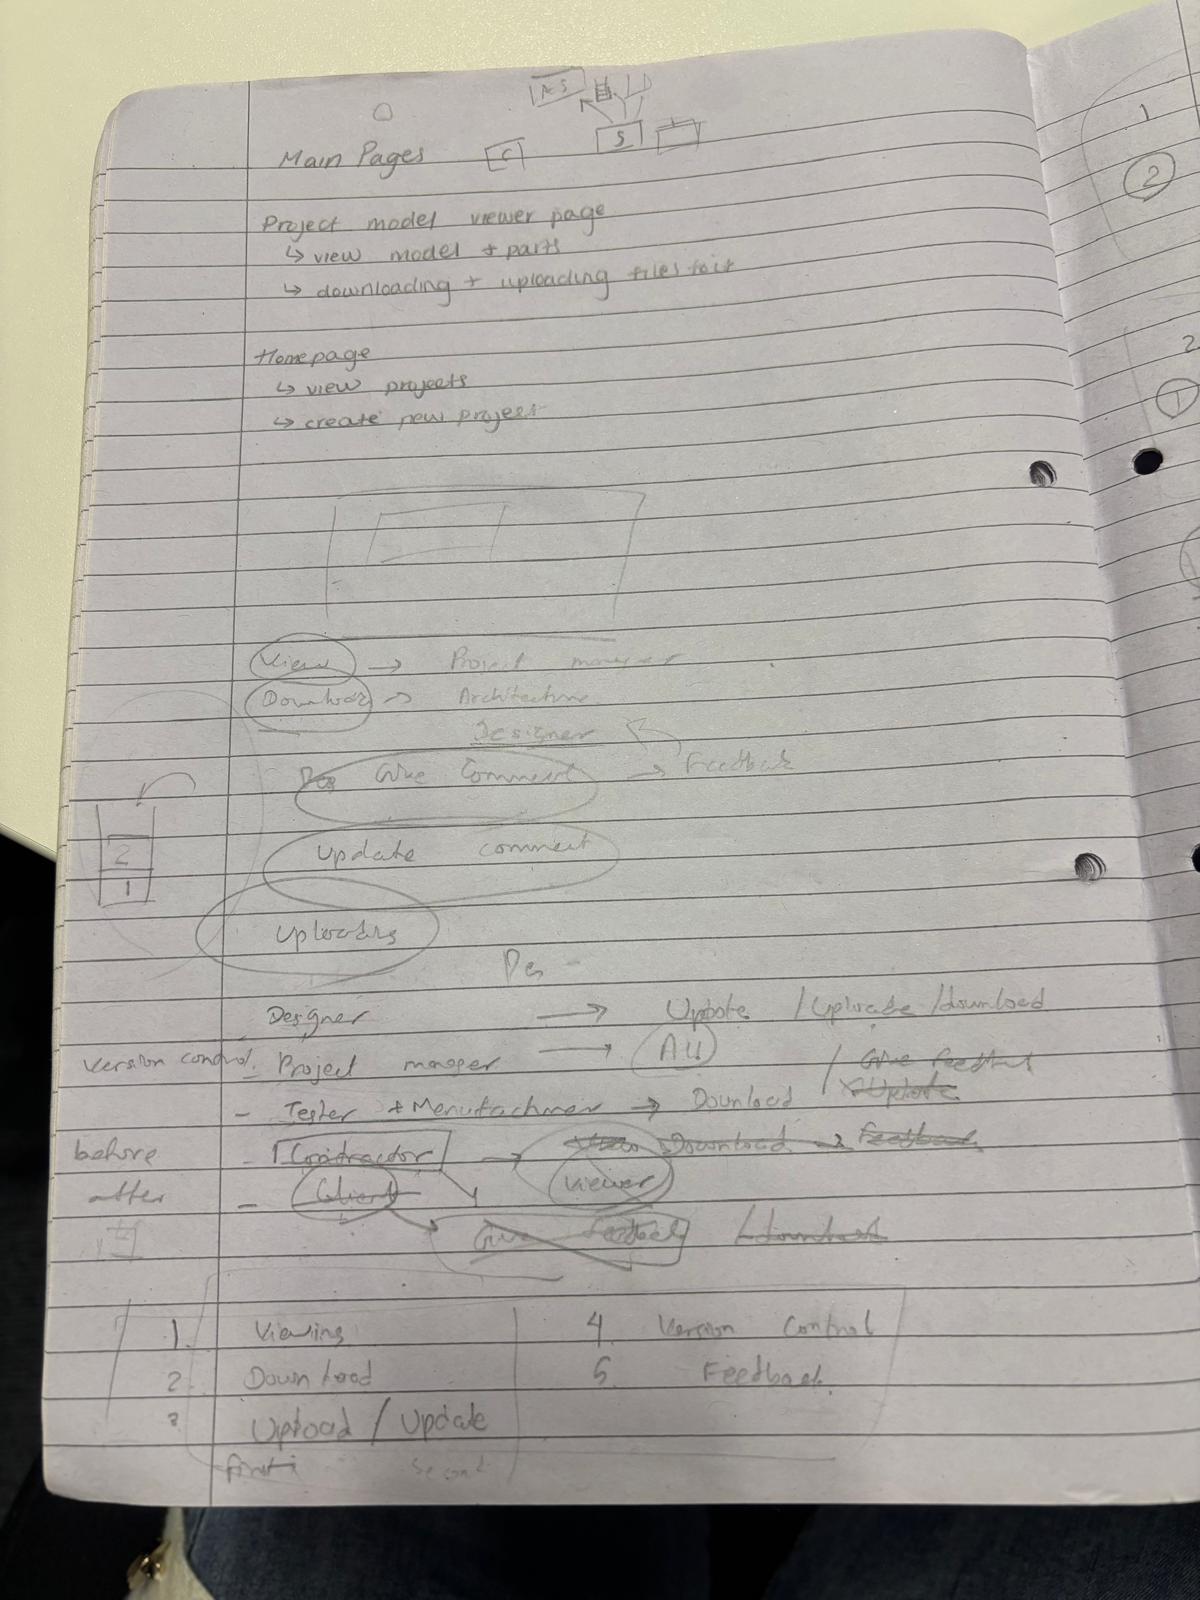 Main Pages
C
S
Project model viewer page
↳ view model + parts
↳ downloading + uploading files to it
Homepage
↳ view projects
↳ create new project
View → Project manager
Download → Architecture
Designer
Give Comment → Feedback
Update comment
2
1
Uploading
Des -
Designer → Update / Uploade / download
Version control - Project manager → All
/ Give feedback
- Tester + Menufachmer → Download
Update
before - Contractor → View Download → Feedback
after - Client
Viewer
Give feedback / download
1. Viewing
2. Download
3 Upload / Update
4. Version Control
5. Feedback
first
Second
1
2
2
1